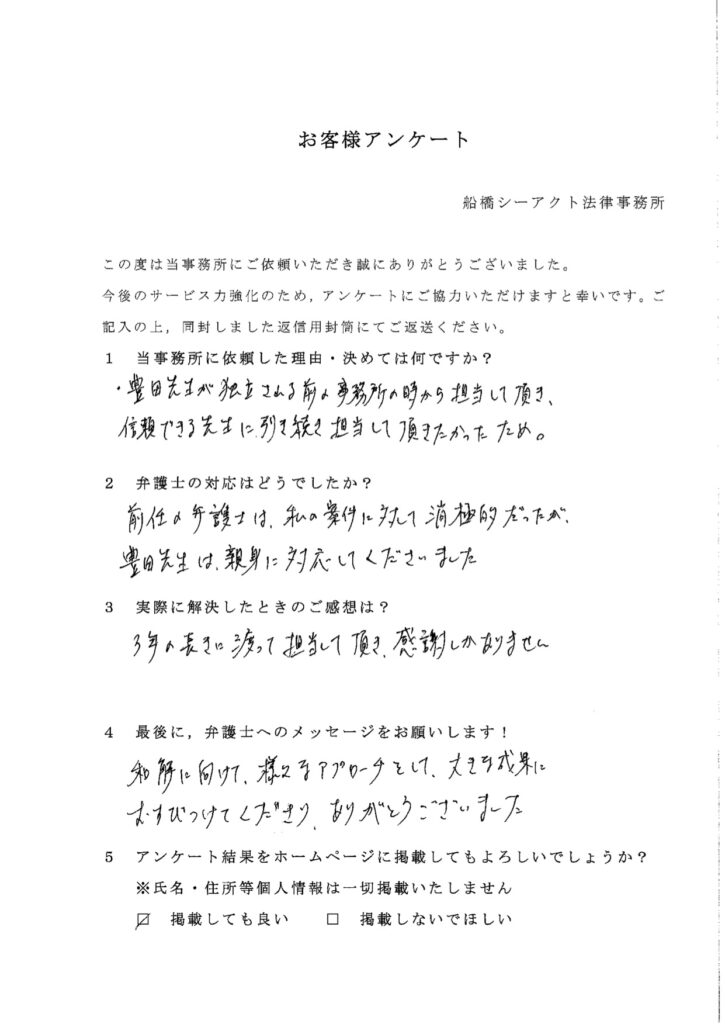 お客様アンケート
船橋シーアクト法律事務所
この度は当事務所にご依頼いただき誠にありがとうございました。
今後のサービス力強化のため，アンケートにご協力いただけますと幸いです。ご
記入の上，同封しました返信用封筒にてご返送ください。
1 当事務所に依頼した理由・決めては何ですか？
・豊田先生が独立される前の事務所の時から担当して頂き、
信頼できる先生に引き続き担当して頂きたかったため。
2 弁護士の対応はどうでしたか？
前任の弁護士は、私の案件に対して消極的だったが、
豊田先生は、親身に対応してくださいました
3 実際に解決したときのご感想は？
3年の長きに渡って担当して頂き、感謝しかありません
4 最後に，弁護士へのメッセージをお願いします！
和解に向けて、様々なアプローチをして、大きな成果に
むすびつけてくださり、ありがとうございました
5 アンケート結果をホームページに掲載してもよろしいでしょうか？
※氏名・住所等個人情報は一切掲載いたしません
☑ 掲載しても良い □ 掲載しないでほしい